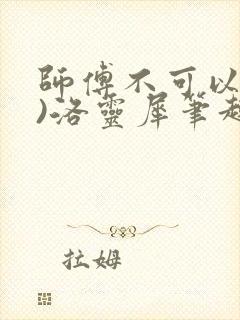 師傅不可以
)洛靈犀筆趣
拉姆